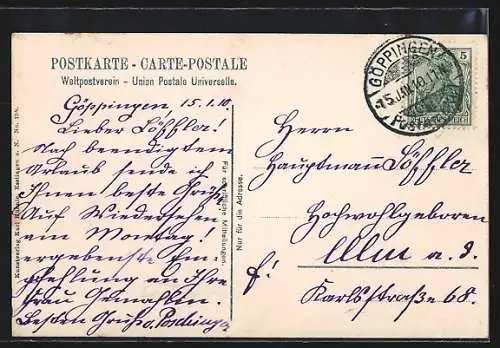 POSTKARTE - CARTE-POSTALE
Weltpostverein - Union Postale Universelle.
Göppingen, 15.1.10.
Lieber Löffler!
Nach beendigtem
Urlaub sende ich
Ihnen beste Grüße
Auf Wiedersehen
am Montag!
ergebenste Em-
pfehlung an Ihre
Frau Gemahlin.
Besten Gruß v. Poschinger
Für schriftliche Mitteilungen.
Nur für die Adresse.
GÖPPINGEN
15.JAN.10.
5
Herrn
Hauptmann Löffler
Hochwohlgeboren
Ulm a. d.
f!
Karlstraße 68.